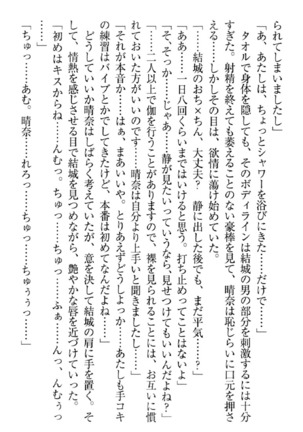 られてしまいましたし」
「あ、あたしは、ちょっとシャワーを浴びにきた……だけで……」
タオルで身体を隠しても、そのボディラインは結城の男の部分を刺激するには十分
すぎた。射精を終えても萎えることのない豪棒を見て、晴奈は恥じらいに口元を押さ
える……しかしその目は、欲情に蕩け始めていた。
「……結城のおち×ちん、大丈夫？　静に出した後でも、まだ平気……？」
「ああ……一日八回くらいまではいけると思う。打ち止めってことはないよ」
「そ、そっか……じゃあ……静が見たいっていうなら、見せつけてもいいんだよね？」
「……二人以上で伽を行うことがありますので、裸を見られることには、お互いに慣
れておいた方がいいのです……晴奈は自分より上手いと聞きましたし……」
「それが本音か……はぁ、まあいいや。とりあえずどうしよっか……あたしも手コキ
の練習はバイブとかでしてたけど、本番は初めてなんだよね……」
どうしていいか晴奈はしばらく考えていたが、意を決して結城の肩に手を置く。そ
して、情熱を感じさせる目で結城を見つめながら、艶やかな唇を近づけていった。
「初めはキスからね……んむっ。ちゅっ……ちゅっ……ふぁ……んっ、んむぅっ
……」
「ちゅっ……あむ。晴奈……れろっ……ちゅっ……ちゅうぅっ……」